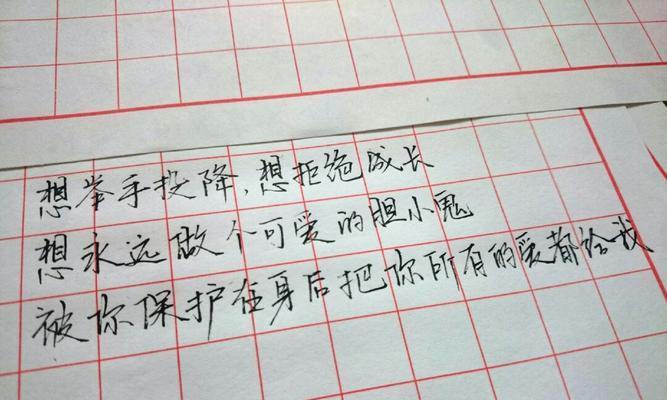 想举手投降,想拒绝成长
想永远做个可爱的胆小鬼
被你保护在身后把你所有的爱都给我